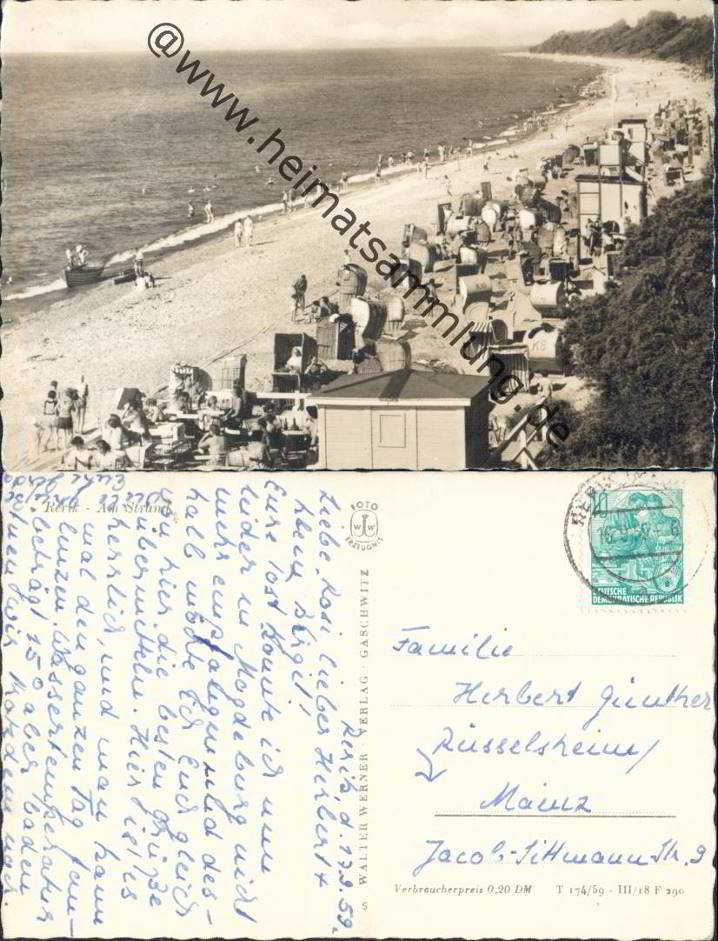 @www.heimatsammlung.de
K8
Rerik - Am Strand
FOTO
W W
ERZEUGNIS
S WALTER WERNER · VERLAG · GASCHWITZ
Rerik, d. 17.9.59.
Liebe Rosi, lieber Herbert +
klein Birgit!
Eure Post konnte ich nun
leider in Magdeburg nicht
mehr empfangen und des-
halb möchte ich Euch gleich
von hier die besten Grüße
übermitteln. Hier ist es
herrlich, und man kann
mal den ganzen Tag faul-
lenzen. Wassertemperatur
beträgt 15° aber baden
RERIK
10
DEUTSCHE
DEMOKRATISCHE REPUBLIK
Familie
Herbert Günther
Rüsselsheim/
Mainz
Jacob-Sittmann-Str. 9
Verbraucherpreis 0,20 DM T 174/59 - III/18 F 290